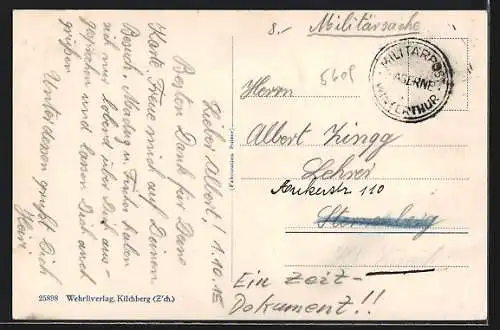 8.- Militärsache
MILITÄRPOST
KASERNE
WINTERTHUR
5609
Herrn
Albert Zingg
Lehrer
Ankerstr. 110
Sternenberg
Ein Zeit-
Dokument!!
Lieber Albert! 1.10.15
Besten Dank für Deine
Karte. Freue mich auf Deinen
Besuch. Montag u. haben
sich nur lobend über Dich aus-
gesprochen und lassen Dich auch
grüßen.
Unterdessen grüßt Dich
Heiri
25898 Wehrliverlag, Kilchberg (Z'ch.)